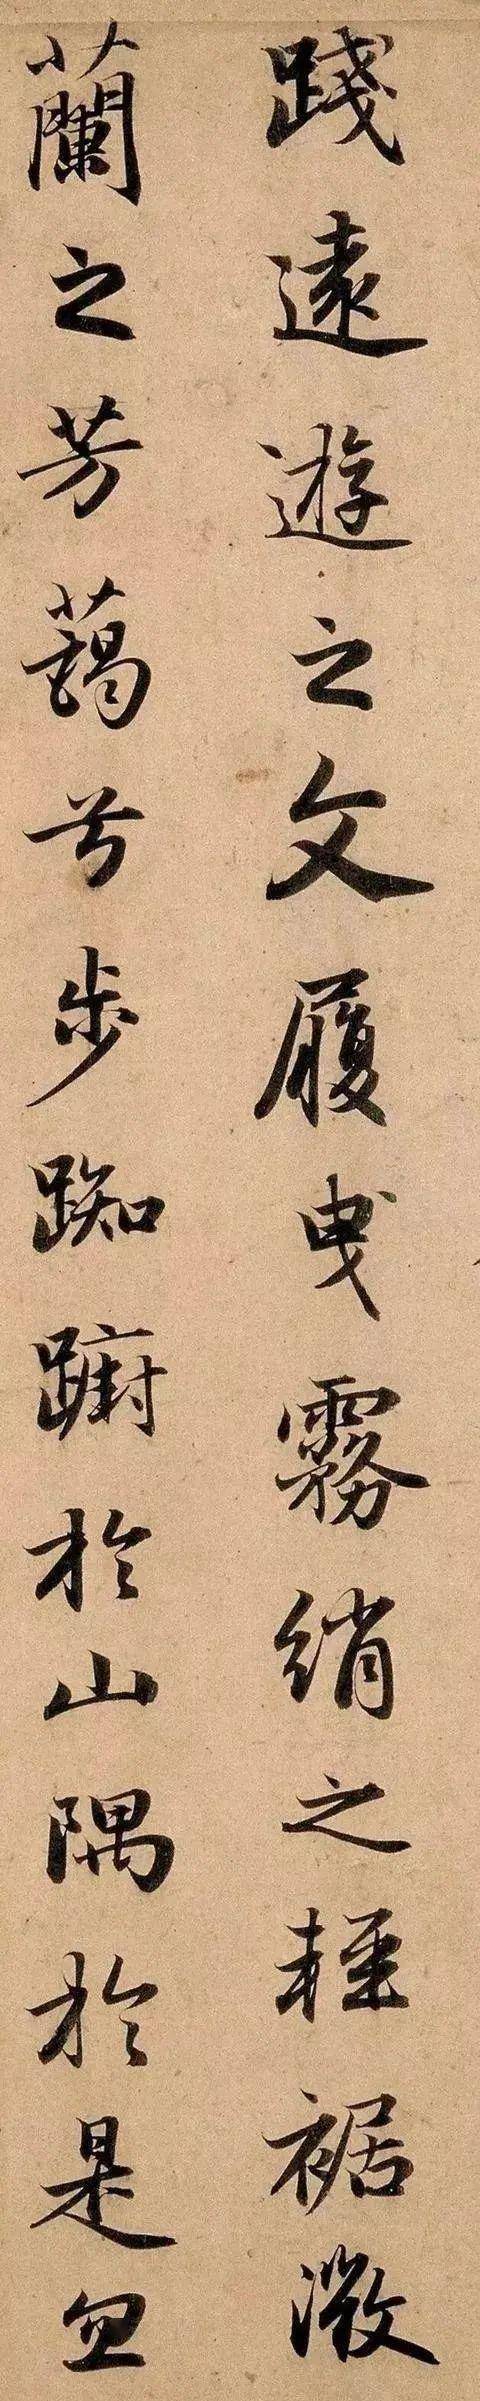 踐遠遊之文履曳霧綃之輕裾微
蘭之芳藹兮步踟躕於山隅於是忽